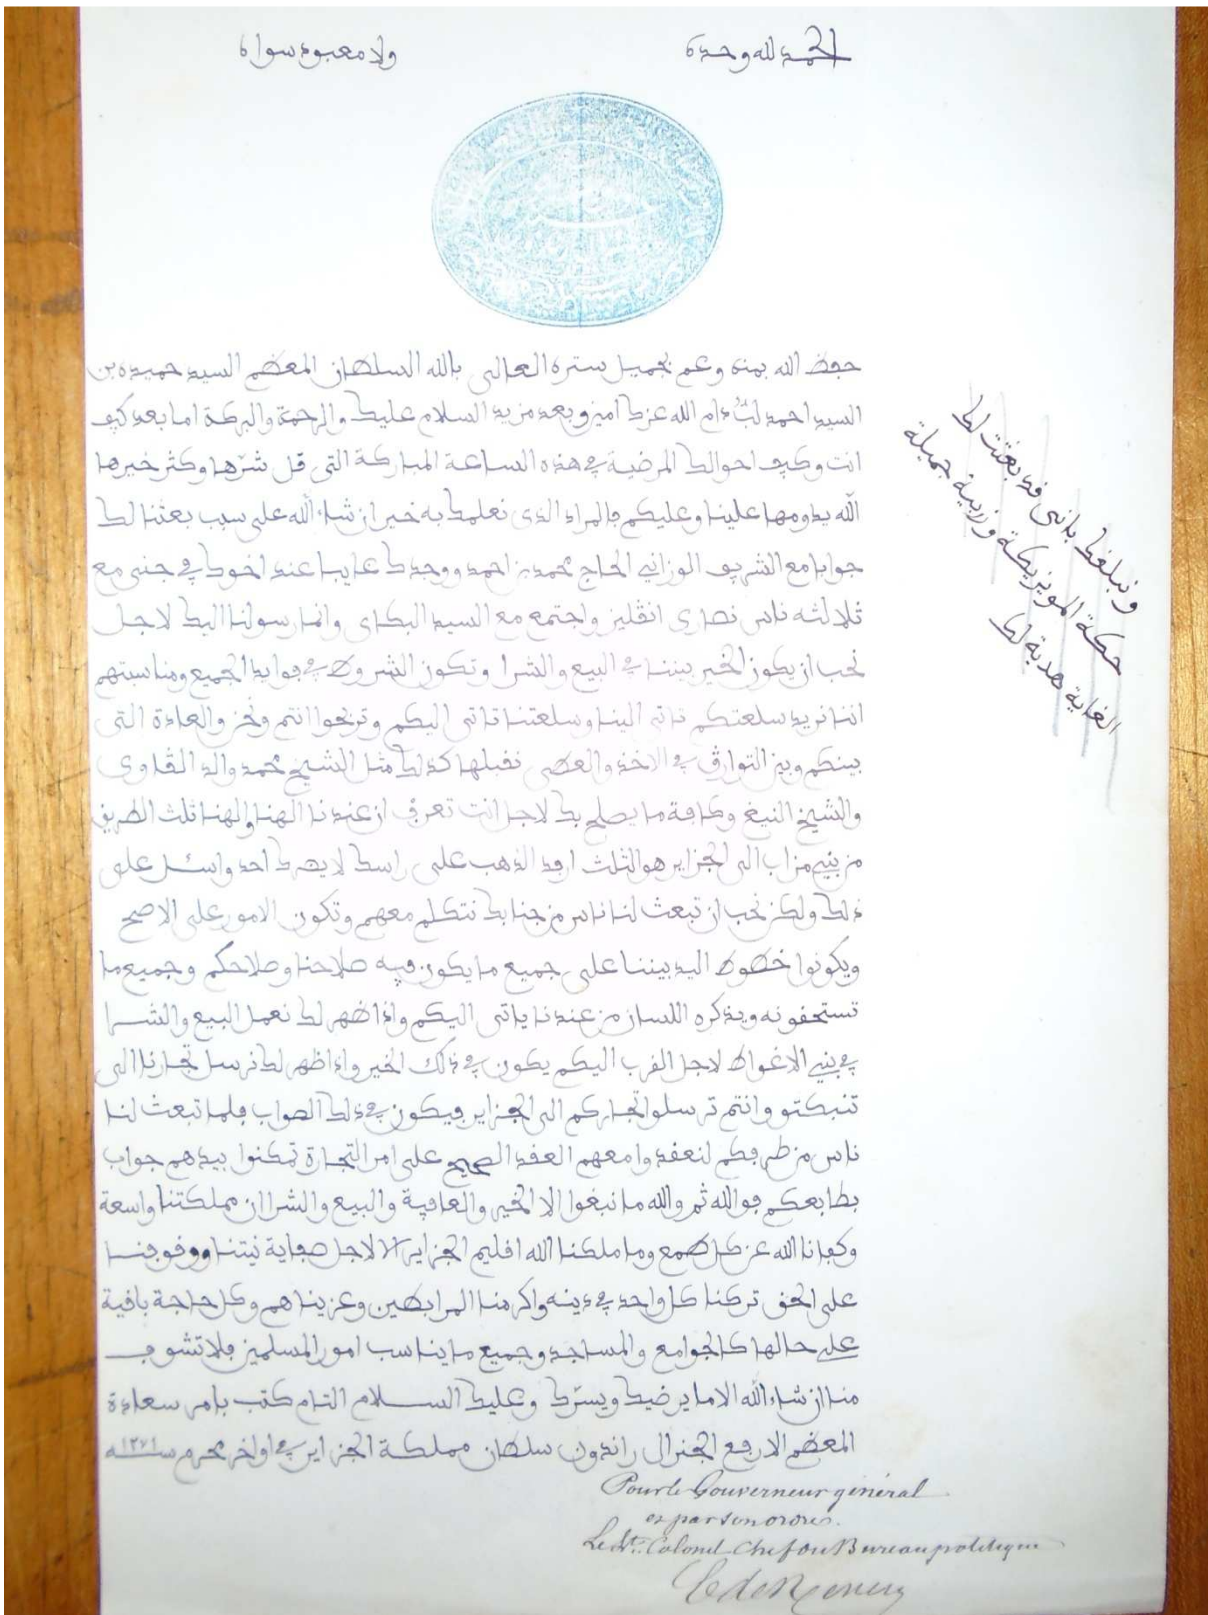 الحمد لله وحده ولا معبود سواه
حفظ الله بمنه وعم بجميل ستره العالي بالله السلطان المعظم السيد حميده بن
السيد احمد لب دام الله عزك امين وبعد مزيد السلام عليك والرحمة والبركة اما بعد كيف
انت وكيف احوالك المرضية في هذه الساعة المباركة التي قل شرها وكثر خيرها
الله يدومها علينا وعليكم فالمراد الذي نعلمك به خير ان شاء الله على سبب بعثنا لك
جوابا مع الشريف الوزاني الحاج محمد بن احمد ووجدك غايبا عند اخوك في جنى مع
ثلاثه ناس نصارى انقليز واجتمع مع السيد البكاي وانما رسولنا اليك لاجل
نحب ان يكون الخير بيننا في البيع والشرا وتكون الشروط في فوايد الجميع ومناسبتهم
اننا نريد سلعتكم تاتي الينا وسلعتنا تاتي اليكم وتربحوا انتم ونحن والعادة التي
بينكم وبين التوارق في الاخذ والعطى نقبلها كذلك مثل الشيخ محمد والد القاوي
والشيخ النيغ وكافة ما يصلح بك لاجل انت تعرف ان عندنا الهنا والهنا ثلث الطريق
من بني مزاب الى الجزاير هو الثلث ارفد الذهب على راسك لا يضرك احد واسئل على
ذلك ولكن نحب ان تبعث لنا ناس من جنابك نتكلم معهم وتكون الامور على الاصح
ويكونوا خطوط اليد بيننا على جميع ما يكون فيه صلاحنا وصلاحكم وجميع ما
تستحقونه ويذكره اللسان من عندنا ياتي اليكم واذا ظهر لك نعمل البيع والشرا
في بني الاغواط لاجل القرب اليكم يكون في ذلك الخير واذا ظهر لك نرسل تجارنا الى
تنبكتو وانتم ترسلوا تجاركم الى الجزاير فيكون في ذلك الصواب فلما تبعث لنا
ناس من طرفكم لنعقدوا معهم العقد الصحيح على امر التجارة تمكنوا بيدهم جواب
بطابعكم فوالله ثم والله ما نبغوا الا الخير والعافية والبيع والشرا ان مملكتنا واسعة
وكفانا الله عن كل طمع وما ملكنا الله اقليم الجزاير الا لاجل صفاية نيتنا ووقوفنا
على الحق تركنا كل واحد في دينه واكرمنا المرابطين وعزيناهم وكل حاجة باقية
على حالها كالجوامع والمساجد وجميع ما يناسب امور المسلمين فلا تشوف
منا ان شاء الله الا ما يرضيك ويسرك وعليك السلام التام كتب بامر سعادة
المعظم الارفع الجنرال راندون سلطان مملكة الجزاير في اواخر محرم سنه ١٢٧١
ونبلغك باني قد بعثت لك
حكة المويزيكة وزربية جميلة
الغاية هدية لك
Pour le Gouverneur général
et par son ordre.
Le Lt. Colonel Chef du Bureau politique